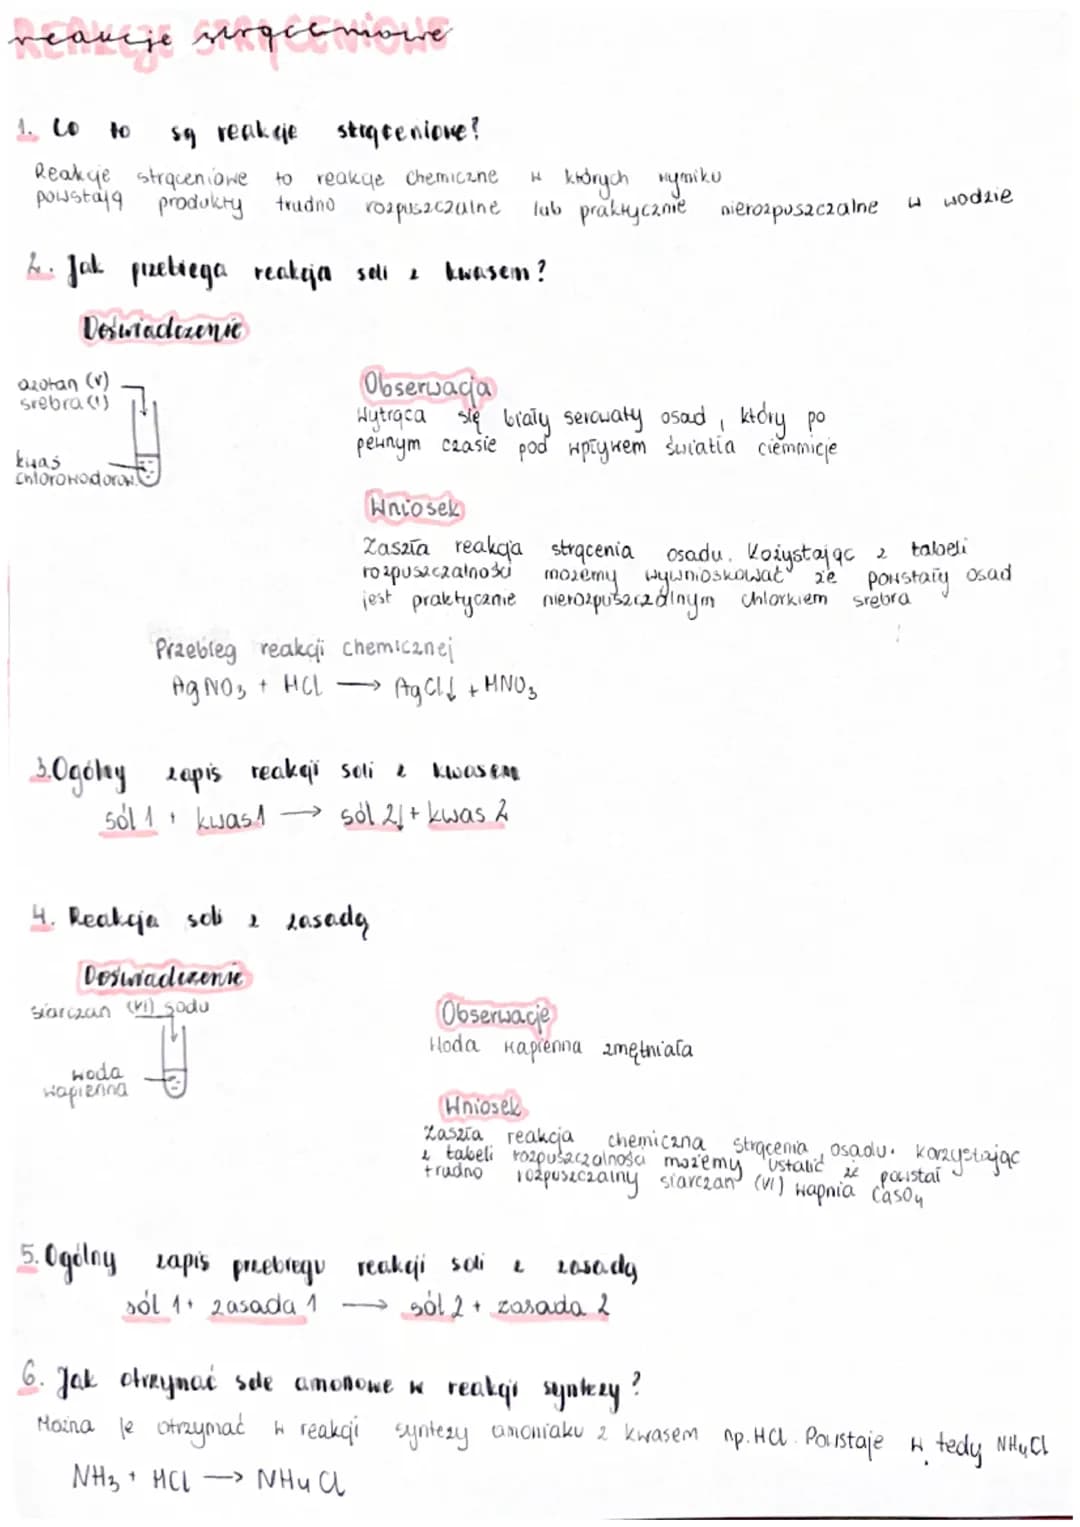 REAKCJE STRĄCENIOWE
reakcje strąceniowe
1. Co to są reakcje strąceniowe?
Reakcje strąceniowe to reakcje chemiczne w których wyniku
powstają produkty trudno rozpuszczalne lub praktycznie nierozpuszczalne w wodzie
2. Jak przebiega reakcja soli z kwasem?
Doświadczenie
azotan (V)
srebra (I)
kwas
chlorowodorow.
Obserwacja
Wytrąca się biały serowaty osad, który po
pewnym czasie pod wpływem światła ciemnieje
Wniosek
Zaszła reakcja strącenia osadu. Kożystając z tabeli
rozpuszczalności możemy wywnioskować że powstały osad
jest praktycznie nierozpuszczalnym chlorkiem srebra
Przebieg reakcji chemicznej
AgNO₃ + HCl → AgCl↓ + HNO₃
3. Ogólny zapis reakcji soli z kwasem
sól 1 + kwas 1 → sól 2↓ + kwas 2
4. Reakcja soli z zasadą
Doświadczenie
siarczan (VI) sodu
woda
wapienna
Obserwacje
Woda wapienna zmętniała
Wniosek
Zaszła reakcja chemiczna strącenia osadu. korzystając
z tabeli rozpuszczalności możemy ustalić że powstał
trudno rozpuszczalny siarczan (VI) wapnia CaSO₄
5. Ogólny zapis przebiegu reakcji soli z zasadą
sól 1 + zasada 1 → sól 2 + zasada 2
6. Jak otrzymać sole amonowe w reakcji syntezy?
Można je otrzymać w reakcji syntezy amoniaku z kwasem np. HCl. Powstaje w tedy NH₄Cl
NH₃ + HCl → NH₄Cl